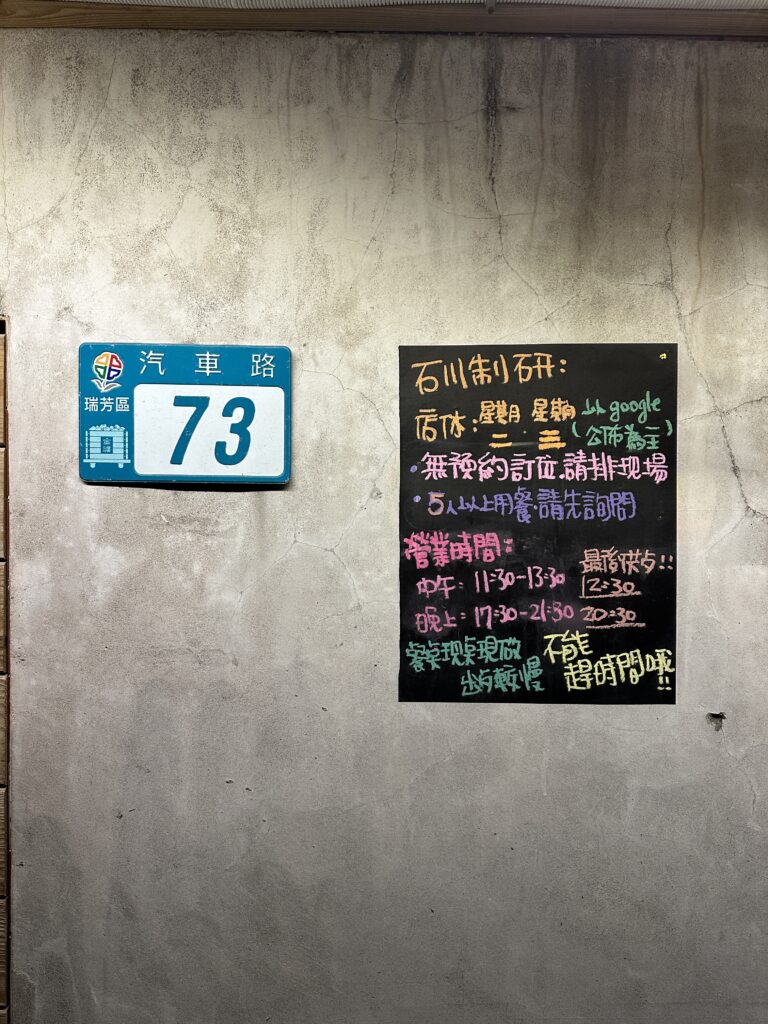 汽車路
瑞芳區
73
石川制研:
店休:星期二 星期三 以google
(公佈為主)
•無預約訂位.請排現場
•5人以上用餐.請先詢問
營業時間:
最後供点!!
中午: 11:30-13:30 12:30
晚上: 17:30-21:30 20:30
餐桌現桌現做
不能
出歺較慢
趕時間哦!!